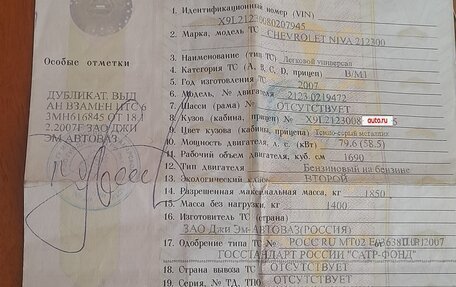 1. Идентификационный номер (VIN)
X9L21230080207945
2. Марка, модель ТС CHEVROLET NIVA 212300
3. Наименование (тип ТС) Легковой универсал
4. Категория ТС (A, B, C, D, прицеп) B/M1
5. Год изготовления ТС 2007
6. Модель, № двигателя 2123,0219472
7. Шасси (рама) № ОТСУТСТВУЕТ
8. Кузов (кабина, прицеп) № X9L2123008 auto.ru 5
9. Цвет кузова (кабины, прицепа) Темно-серый металлик
10. Мощность двигателя, л. с. (кВт) 79,6 (58.5)
11. Рабочий объем двигателя, куб. см 1690
12. Тип двигателя Бензиновый на бензине
13. Экологический класс ВТОРОЙ
14. Разрешенная максимальная масса, кг 1850
15. Масса без нагрузки, кг 1400
16. Изготовитель ТС (страна)
ЗАО Джи Эм-АВТОВАЗ(РОССИЯ)
17. Одобрение типа ТС № РОСС RU МТ02
ГОССТАНДАРТ РОССИИ "САТР-ФОНД"
18. Страна вывоза ТС ОТСУТСТВУЕТ
19. Серия, № ТД, ТПО ОТСУТСТВУЕТ
Особые отметки
ДУБЛИКАТ. ВЫД
АН ВЗАМЕН ПТС 6
3МН616845 ОТ 18.1
2.2007Г ЗАО ДЖИ
ЭМ АВТОВАЗ